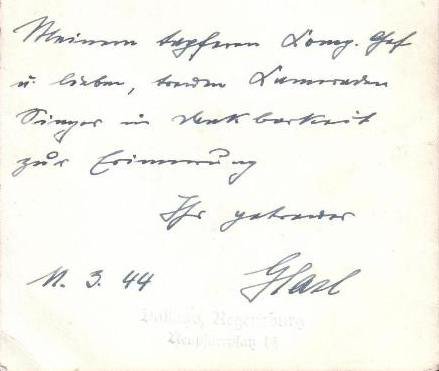 Meinem tapferen Komp. Chef
u. lieben, treuen Kameraden
Singer in Dankbarkeit
zur Erinnerung
Ihr getreuer
11. 3. 44
Regensburg
Neupfarrplatz 14